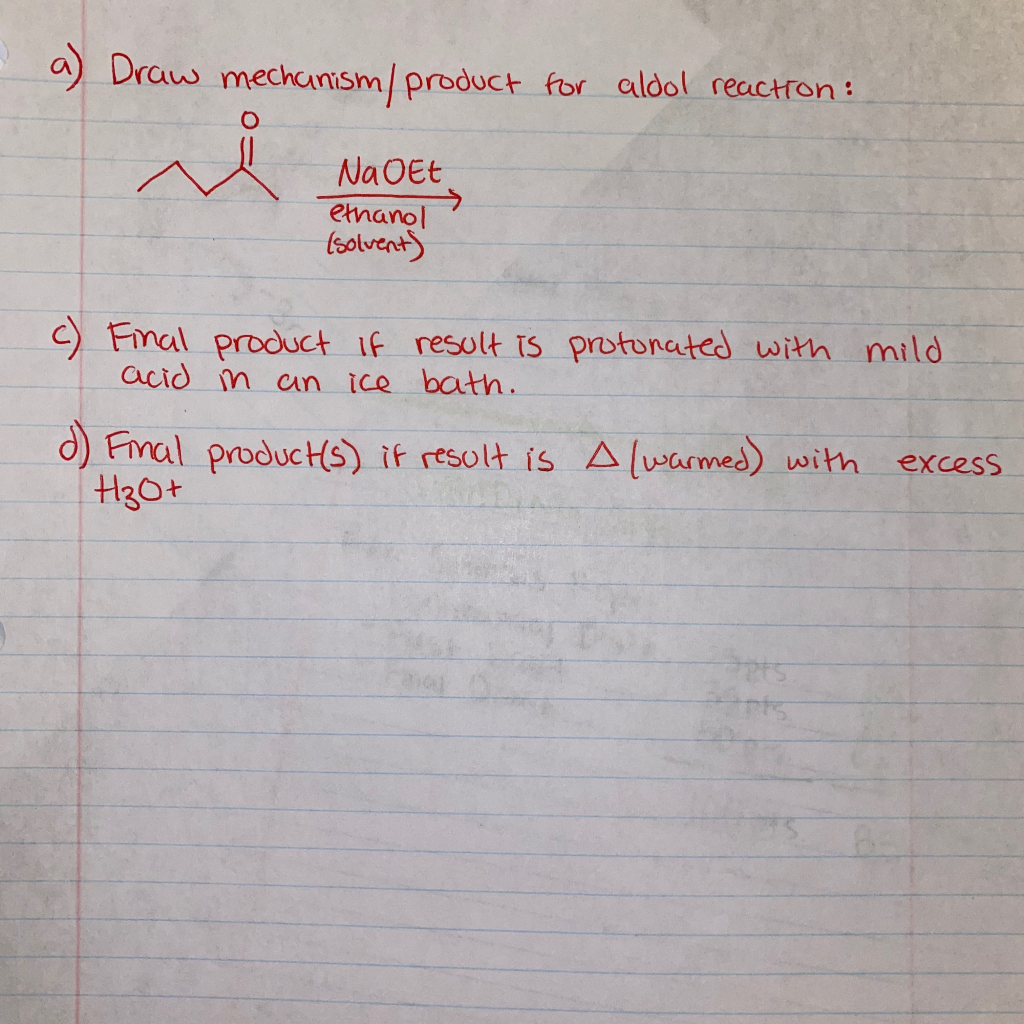 a) Draw mechanism/product for aldol reaction:
O
NaOEt
ethanol
(solvent)
c) Final product if result is protonated with mild
acid in an ice bath.
d) Final product(s) if result is Δ (warmed) with excess
H3O+